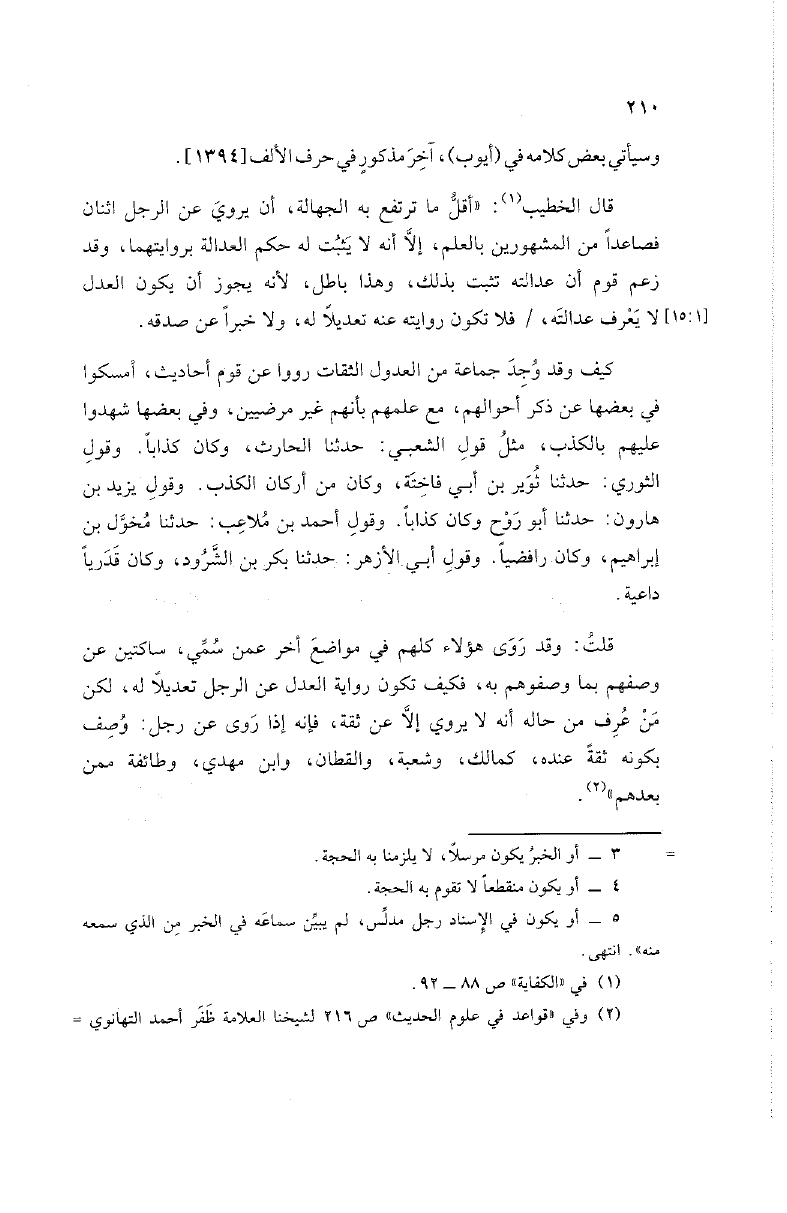 ٢١٠
وسيأتي بعض كلامه في (أيوب)، آخِرَ مذكورٍ في حرف الألف [١٣٩٤].
قال الخطيب(١): «أقلُّ ما ترتفع به الجهالة، أن يرويَ عن الرجل اثنان
فصاعداً من المشهورين بالعلم، إلَّا أنه لا يَثبُت له حكم العدالة بروايتهما، وقد
زعم قوم أن عدالته تثبت بذلك، وهذا باطل، لأنه يجوز أن يكون العدل
[١٥:١] لا يَعْرف عدالتَه، / فلا تكون روايته عنه تعديلاً له، ولا خبراً عن صدقه.
كيف وقد وُجِدَ جماعة من العدول الثقات رووا عن قوم أحاديث، أمسكوا
في بعضها عن ذكر أحوالهم، مع علمهم بأنهم غير مرضيين، وفي بعضها شهدوا
عليهم بالكذب، مثلُ قولِ الشعبي: حدثنا الحارث، وكان كذاباً. وقولِ
الثوري: حدثنا ثُوَير بن أبي فاخِتَة، وكان من أركان الكذب. وقولِ يزيد بن
هارون: حدثنا أبو رَوْح وكان كذاباً. وقولِ أحمد بن مُلاعِب: حدثنا مُخوَّل بن
إبراهيم، وكان رافضياً. وقولِ أبي الأزهر: حدثنا بكر بن الشَّرُود، وكان قَدَرياً
داعية.
قلتُ: وقد رَوَى هؤلاء كلهم في مواضعَ أخر عمن سُمِّي، ساكتين عن
وصفهم بما وصفوهم به، فكيف تكون رواية العدل عن الرجل تعديلاً له، لكن
مَنْ عُرِف من حاله أنه لا يروي إلَّا عن ثقة، فإنه إذا رَوى عن رجل: وُصِف
بكونه ثقةً عنده، كمالك، وشعبة، والقطان، وابن مهدي، وطائفة ممن
بعدهم»(٢).
= ٣ ــ أو الخبرُ يكون مرسلاً، لا يلزمنا به الحجة.
٤ ــ أو يكون منقطعاً لا تقوم به الحجة.
٥ ــ أو يكون في الإسناد رجل مدلِّس، لم يبيِّن سماعَه في الخبر مِن الذي سمعه
منه». انتهى.
(١) في «الكفاية» ص ٨٨ ــ ٩٢.
(٢) وفي «قواعد في علوم الحديث» ص ٢١٦ لشيخنا العلامة ظَفَر أحمد التهانوي =